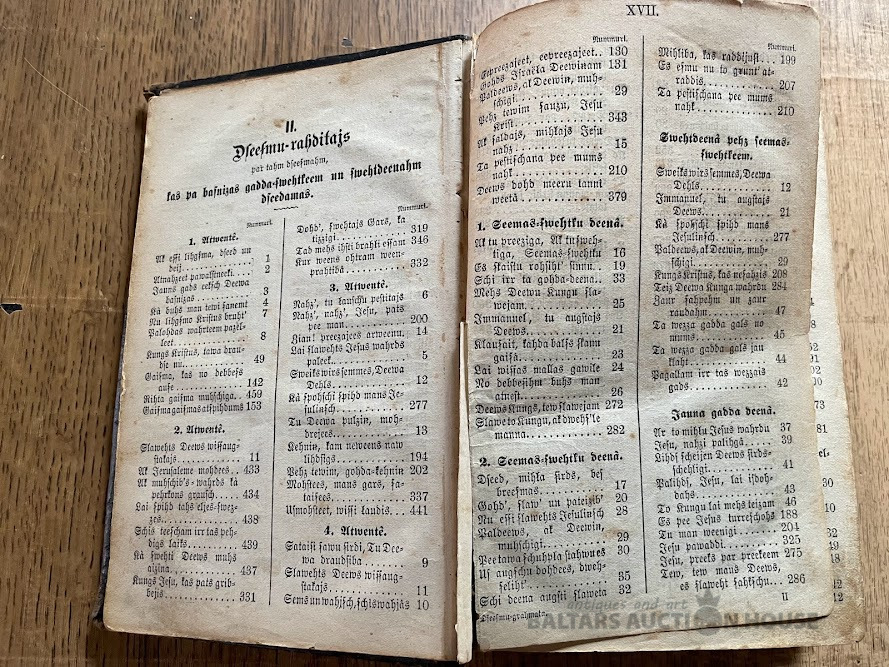 II.
Dſeeſmu-rahditajs
par tahm dſeeſmahm,
kas pa baſnizas gadda-ſwehtkeem un ſwehtdeenahm
dſeedamas.
Nummuri.
1. Atwentê.
Ak eſſi lihgſma, dſeed un
deij 1
Atnahzeet pawaſſineeki 2
Jauns gads eekſch Deewa
baſnizas 3
Kà buhs man tewi ſanemt 4
Nu lihgſmo Kriſtus bruht' 7
Paſohdas wahrteem pazil-
leet 8
Kungs Kriſtus, tawa drau-
dſe nu 49
Gaiſma, kas no debbeſs
auſe 142
Kihta gaiſma muhſchiga 459
Gaiſma gaiſmas atſpihdums 153
2. Atwentê.
Slawehts Deews wiſſaug-
ſtakajs 11
Ak Jeruſaleme mohdees 433
Ak muhſchib's-wahrds kà
pehrkons grauſch 434
Lai ſpihd tahs eljes-ſwez-
zes 438
Schis teeſcham irr tas peh-
digs laiks 439
Kà ſwehti Deews muhs
aizina 437
Kungs Jeſu, kas pats grib-
bejis 331
Nummuri.
Dohd', ſwehtajs Gars, ka
tizzigi 319
Tad mehs ihſti brahli eſſam 346
Kur weens ohtram ween-
prahtibâ 332
3. Atwentê.
Nahz', tu ļauſchu peſtitajs 6
Nahz', nahz', Jeſu, pats
pee man 200
Zian! preezajees arweenu 14
Lai ſlawehts Jeſus wahrds
paleek 5
Sweiks wirs ſemmes, Deewa
Dehls 12
Kà ſpohſchi ſpihd mans Je-
ſulinſch 277
Tu Deewa pulzin, moh-
drejees 13
Kehnin, kam neweens naw
lihdſigs 194
Pehz tewim, gohda-kehnin 202
Mohſtees, mans gars, ſa-
taiſees 337
Uſmohſteet, wiſſi ļaudis 441
4. Atwentê.
Sataiſi ſawu ſirdi, Tu Dee-
wa draudſiba 9
Slawehts Deews wiſſaug-
ſtakajs 11
Sems un wahjſch, ſchis wahjâs 10
XVII.
Nummuri.
Eepreezajeet, eepreezajeet 130
Gohds Iſraëla Deewinam 131
Paldeews, ak Deewin, muh-
ſchigi 29
Pehz tewim ſauzu, Jeſu
Kriſt 343
Ak ſaldajs, mihļajs Jeſu
nahz 15
Ta peſtiſchana pee mums
nahk 210
Deews dohd meeru tanni
weetâ 379
1. Seemas-ſwehtku deenâ.
Ak tu preeziga, Ak tu ſweh-
tiga, Seemas-ſwehtku 16
Es ſkaiſtu rohſiht' ſinnu 19
Schi irr ta gohda-deena 33
Mehs Deewu Kungu ſla-
wejam 25
Immanuel, tu augſtajs
Deews 21
Klauſait, kahda balſs ſkann
gaiſâ 23
Lai wiſſas mallas gawile 24
No debbeſihm buhs man
atneſt 26
Deews Kungs, tew ſlawejam 272
Slawe to Kungu, ak dwehſ'le
manna 282
2. Seemas-ſwehtku deenâ.
Dſeed, mihļa ſirds, beſ
breeſmas 17
Gohd', ſlaw' un pateizib' 20
Nu eſſi ſlawehts Jeſulinſch 28
Paldeews, ak Deewin,
muhſchigi 29
Pee tawa ſchuhpļa ſtahwu es 30
Us augſchu dohdees, dweh-
ſeliht' 35
Schi deena augſti ſlaweta 32
Dſeeſmu-grahmata.
Nummuri.
Mihliba, kas raddijuſi 199
Es eſmu nu to grunt' at-
raddis 207
Ta peſtiſchana pee mums
nahk 210
Swehtdeenâ pehz ſeemas-
ſwehtkeem.
Sweiks wirs ſemmes, Deewa
Dehls 12
Immanuel, tu augſtajs
Deews 21
Kà ſpohſchi ſpihd mans
Jeſulinſch 277
Paldeews, ak Deewin, muh-
ſchigi 29
Kungs Kriſtus, kas neſahzis 208
Teiz Deewa Kunga wahrdu 284
Zaur ſahpehm un zaur
raudahm 47
Ta wezza gadda gals no
mums 45
Ta wezza gadda gals jau
klaht 44
Pagallam irr tas wezzais
gads 42
Jauna gadda deenâ.
Ar to mihļu Jeſus wahrdu 37
Jeſu, nahzi palihgâ 39
Lihdſ ſcheijen Deews ſirds-
ſchehligi 41
Palihdſi, Jeſu, lai iſdoh-
dahs 43
To Kungu lai mehs teizam 46
Es pee Jeſus turreſchohs 188
Tu man weenigi 204
Jeſu pawaddi 325
Jeſu, preeks par preekeem 275
Tew, tew mans Deews,
es ſlaweht ſahkſchu 286
II
antiques and art
BALTARS AUCTION HOUSE